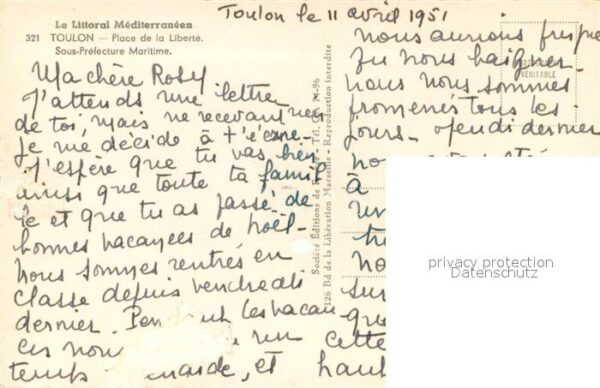 Le Littoral Méditerranéen
321 TOULON — Place de la Liberté.
Sous-Préfecture Maritime.
Toulon le 11 avril 1951
Ma chère Rosy
J'attends une lettre
de toi, mais ne recevant rien
je me décide à t'écrire.
J'espère que tu vas bien
ainsi que toute ta famil
le et que tu as passé de
bonnes vacances de noël.
Nous sommes rentrés en
classe depuis vendredi
dernier. Pendant les vacan
ces nous un
temps et
Société Éditions de
126 Bd de la Libération Marseille - Reproduction interdite
nous aurions presque
pu nous baigner.
nous nous sommes
promenés tous les
jours. jeudi dernier
à
sur
que
cette
haut
VÉRITABLE
privacy protection
Datenschutz